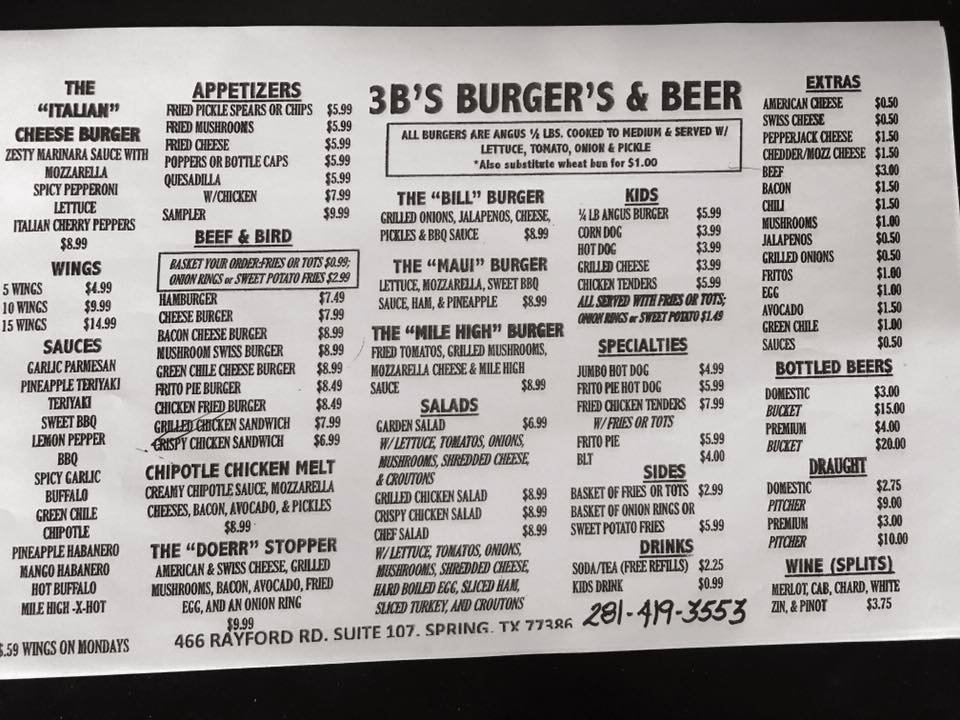 THE
"ITALIAN"
CHEESE BURGER
ZESTY MARINARA SAUCE WITH
MOZZARELLA
SPICY PEPPERONI
LETTUCE
ITALIAN CHERRY PEPPERS
$8.99
WINGS
5 WINGS $4.99
10 WINGS $9.99
15 WINGS $14.99
SAUCES
GARLIC PARMESAN
PINEAPPLE TERIYAKI
TERIYAKI
SWEET BBQ
LEMON PEPPER
BBQ
SPICY GARLIC
BUFFALO
GREEN CHILE
CHIPOTLE
PINEAPPLE HABANERO
MANGO HABANERO
HOT BUFFALO
MILE HIGH -X-HOT
$.59 WINGS ON MONDAYS
APPETIZERS
FRIED PICKLE SPEARS OR CHIPS $5.99
FRIED MUSHROOMS $5.99
FRIED CHEESE $5.99
POPPERS OR BOTTLE CAPS $5.99
QUESADILLA $5.99
W/CHICKEN $7.99
SAMPLER $9.99
BEEF & BIRD
BASKET YOUR ORDER:FRIES OR TOTS $0.99;
ONION RINGS or SWEET POTATO FRIES $2.99
HAMBURGER $7.49
CHEESE BURGER $7.99
BACON CHEESE BURGER $8.99
MUSHROOM SWISS BURGER $8.99
GREEN CHILE CHEESE BURGER $8.99
FRITO PIE BURGER $8.49
CHICKEN FRIED BURGER $8.49
GRILLED CHICKEN SANDWICH $7.99
CRISPY CHICKEN SANDWICH $6.99
CHIPOTLE CHICKEN MELT
CREAMY CHIPOTLE SAUCE, MOZZARELLA
CHEESES, BACON, AVOCADO, & PICKLES
$8.99
THE "DOERR" STOPPER
AMERICAN & SWISS CHEESE, GRILLED
MUSHROOMS, BACON, AVOCADO, FRIED
EGG, AND AN ONION RING
$9.99
3B'S BURGER'S & BEER
ALL BURGERS ARE ANGUS ½ LBS. COOKED TO MEDIUM & SERVED W/
LETTUCE, TOMATO, ONION & PICKLE
*Also substitute wheat bun for $1.00
THE "BILL" BURGER
GRILLED ONIONS, JALAPENOS, CHEESE,
PICKLES & BBQ SAUCE $8.99
THE "MAUI" BURGER
LETTUCE, MOZZARELLA, SWEET BBQ
SAUCE, HAM, & PINEAPPLE $8.99
THE "MILE HIGH" BURGER
FRIED TOMATOS, GRILLED MUSHROOMS,
MOZZARELLA CHEESE & MILE HIGH
SAUCE $8.99
SALADS
GARDEN SALAD $6.99
W/ LETTUCE, TOMATOS, ONIONS,
MUSHROOMS, SHREDDED CHEESE,
& CROUTONS
GRILLED CHICKEN SALAD $8.99
CRISPY CHICKEN SALAD $8.99
CHEF SALAD $8.99
W/ LETTUCE, TOMATOS, ONIONS,
MUSHROOMS, SHREDDED CHEESE,
HARD BOILED EGG, SLICED HAM,
SLICED TURKEY, AND CROUTONS
KIDS
¼ LB ANGUS BURGER $5.99
CORN DOG $3.99
HOT DOG $3.99
GRILLED CHEESE $3.99
CHICKEN TENDERS $5.99
ALL SERVED WITH FRIES OR TOTS;
ONION RINGS or SWEET POTATO $1.49
SPECIALTIES
JUMBO HOT DOG $4.99
FRITO PIE HOT DOG $5.99
FRIED CHICKEN TENDERS $7.99
W/FRIES OR TOTS
FRITO PIE $5.99
BLT $4.00
SIDES
BASKET OF FRIES OR TOTS $2.99
BASKET OF ONION RINGS OR
SWEET POTATO FRIES $5.99
DRINKS
SODA/TEA (FREE REFILLS) $2.25
KIDS DRINK $0.99
EXTRAS
AMERICAN CHEESE $0.50
SWISS CHEESE $0.50
PEPPERJACK CHEESE $1.50
CHEDDER/MOZZ CHEESE $1.50
BEEF $3.00
BACON $1.50
CHILI $1.50
MUSHROOMS $1.00
JALAPENOS $0.50
GRILLED ONIONS $0.50
FRITOS $1.00
EGG $1.00
AVOCADO $1.50
GREEN CHILE $1.00
SAUCES $0.50
BOTTLED BEERS
DOMESTIC $3.00
BUCKET $15.00
PREMIUM $4.00
BUCKET $20.00
DRAUGHT
DOMESTIC $2.75
PITCHER $9.00
PREMIUM $3.00
PITCHER $10.00
WINE (SPLITS)
MERLOT, CAB, CHARD, WHITE
ZIN, & PINOT $3.75
466 RAYFORD RD. SUITE 107. SPRING, TX 77386 281-419-3553